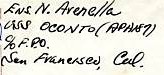 Ens N. Arenella
USS OCONTO (APA187)
c/o F.P.O.
San Francisco, Cal.